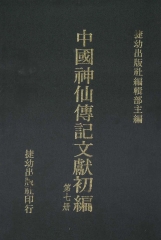 捷幼出版社編輯部主編
中國神仙傳記文獻初編
第七册
捷幼出版社印行